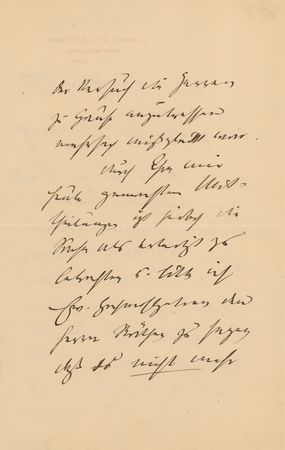 der Versuch die Herren
zu Hause anzutreffen
mehrfach mißglückt war.
Nach mir
heute gemachten Mit-
theilungen ist jedoch die
Sache als erledigt zu
betrachten u. bitte ich
Ew. Hochwohlgeboren den
Herrn zu sagen
daß es nicht mehr